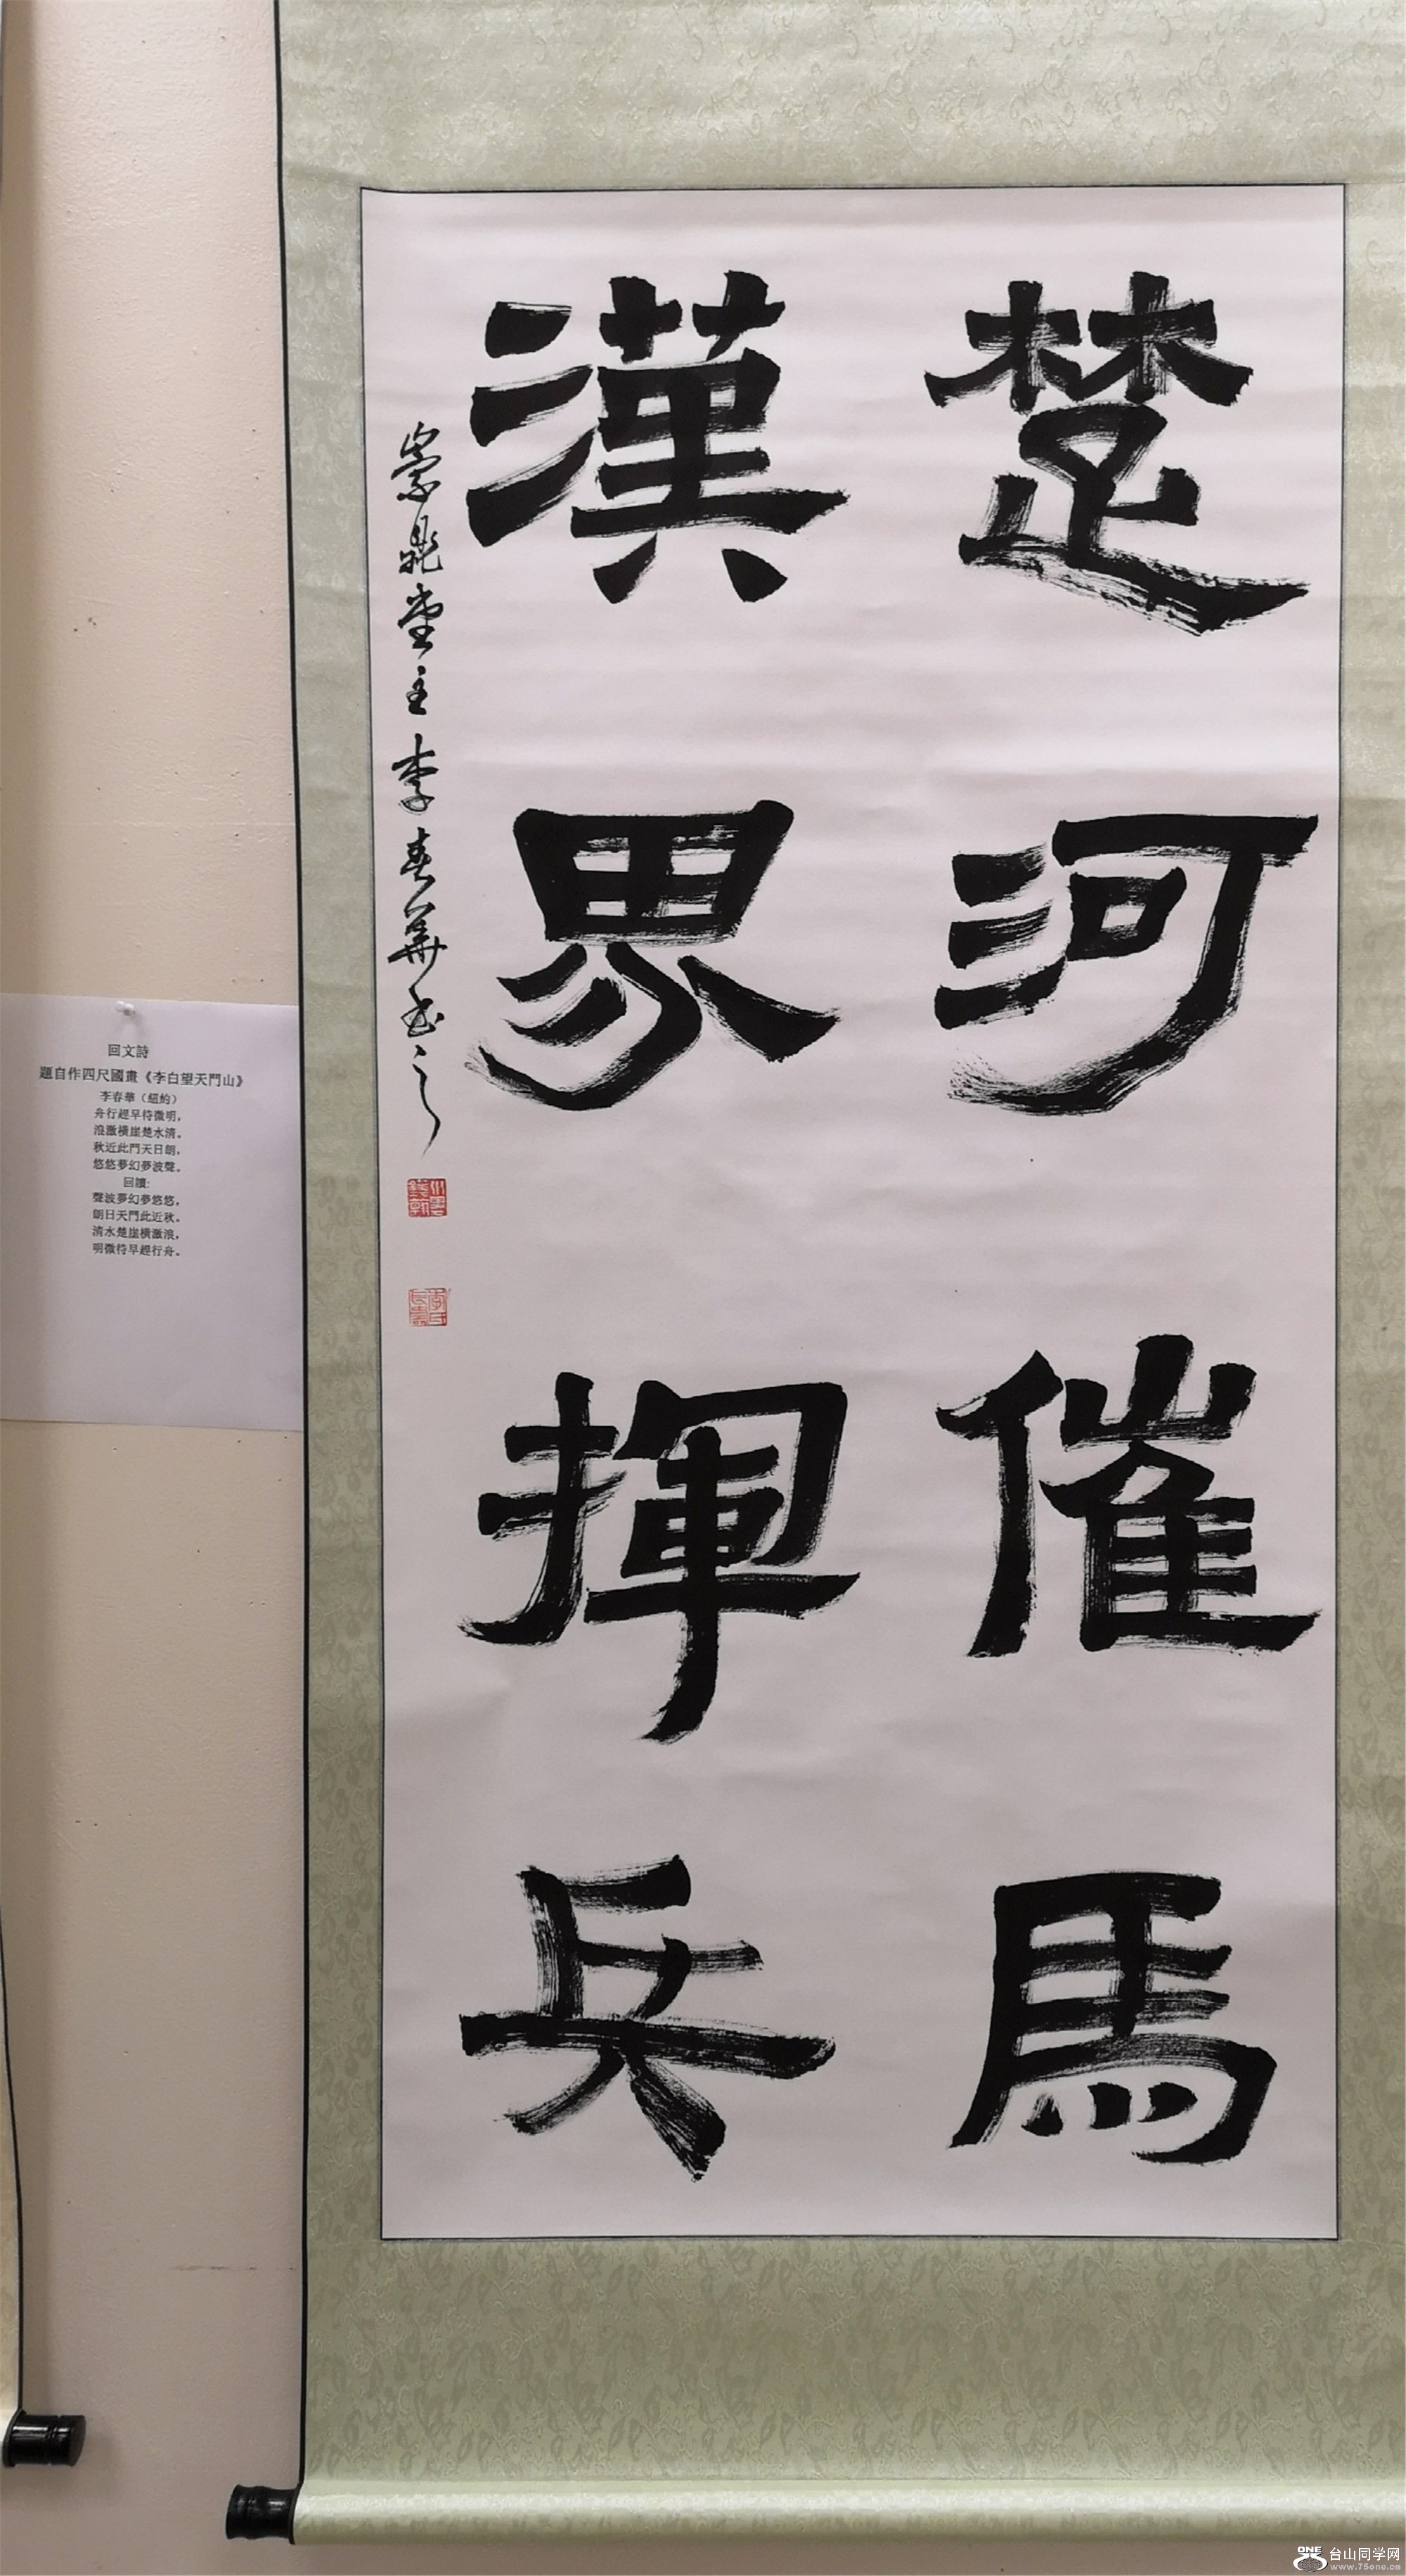 楚河催馬
漢界揮兵
崇鼎堂主李春華書之
回文詩
題自作四尺國畫《李白望天門山》
李春華（紐約）
舟行趕早待微明，
浪激橫崖楚水清。
秋近此門天日朗，
悠悠夢幻夢波聲。
回讀:
聲波夢幻夢悠悠，
朗日天門此近秋。
清水楚崖橫激浪，
明微待早趕行舟。
ONE 台山同学网
www.75one.cn